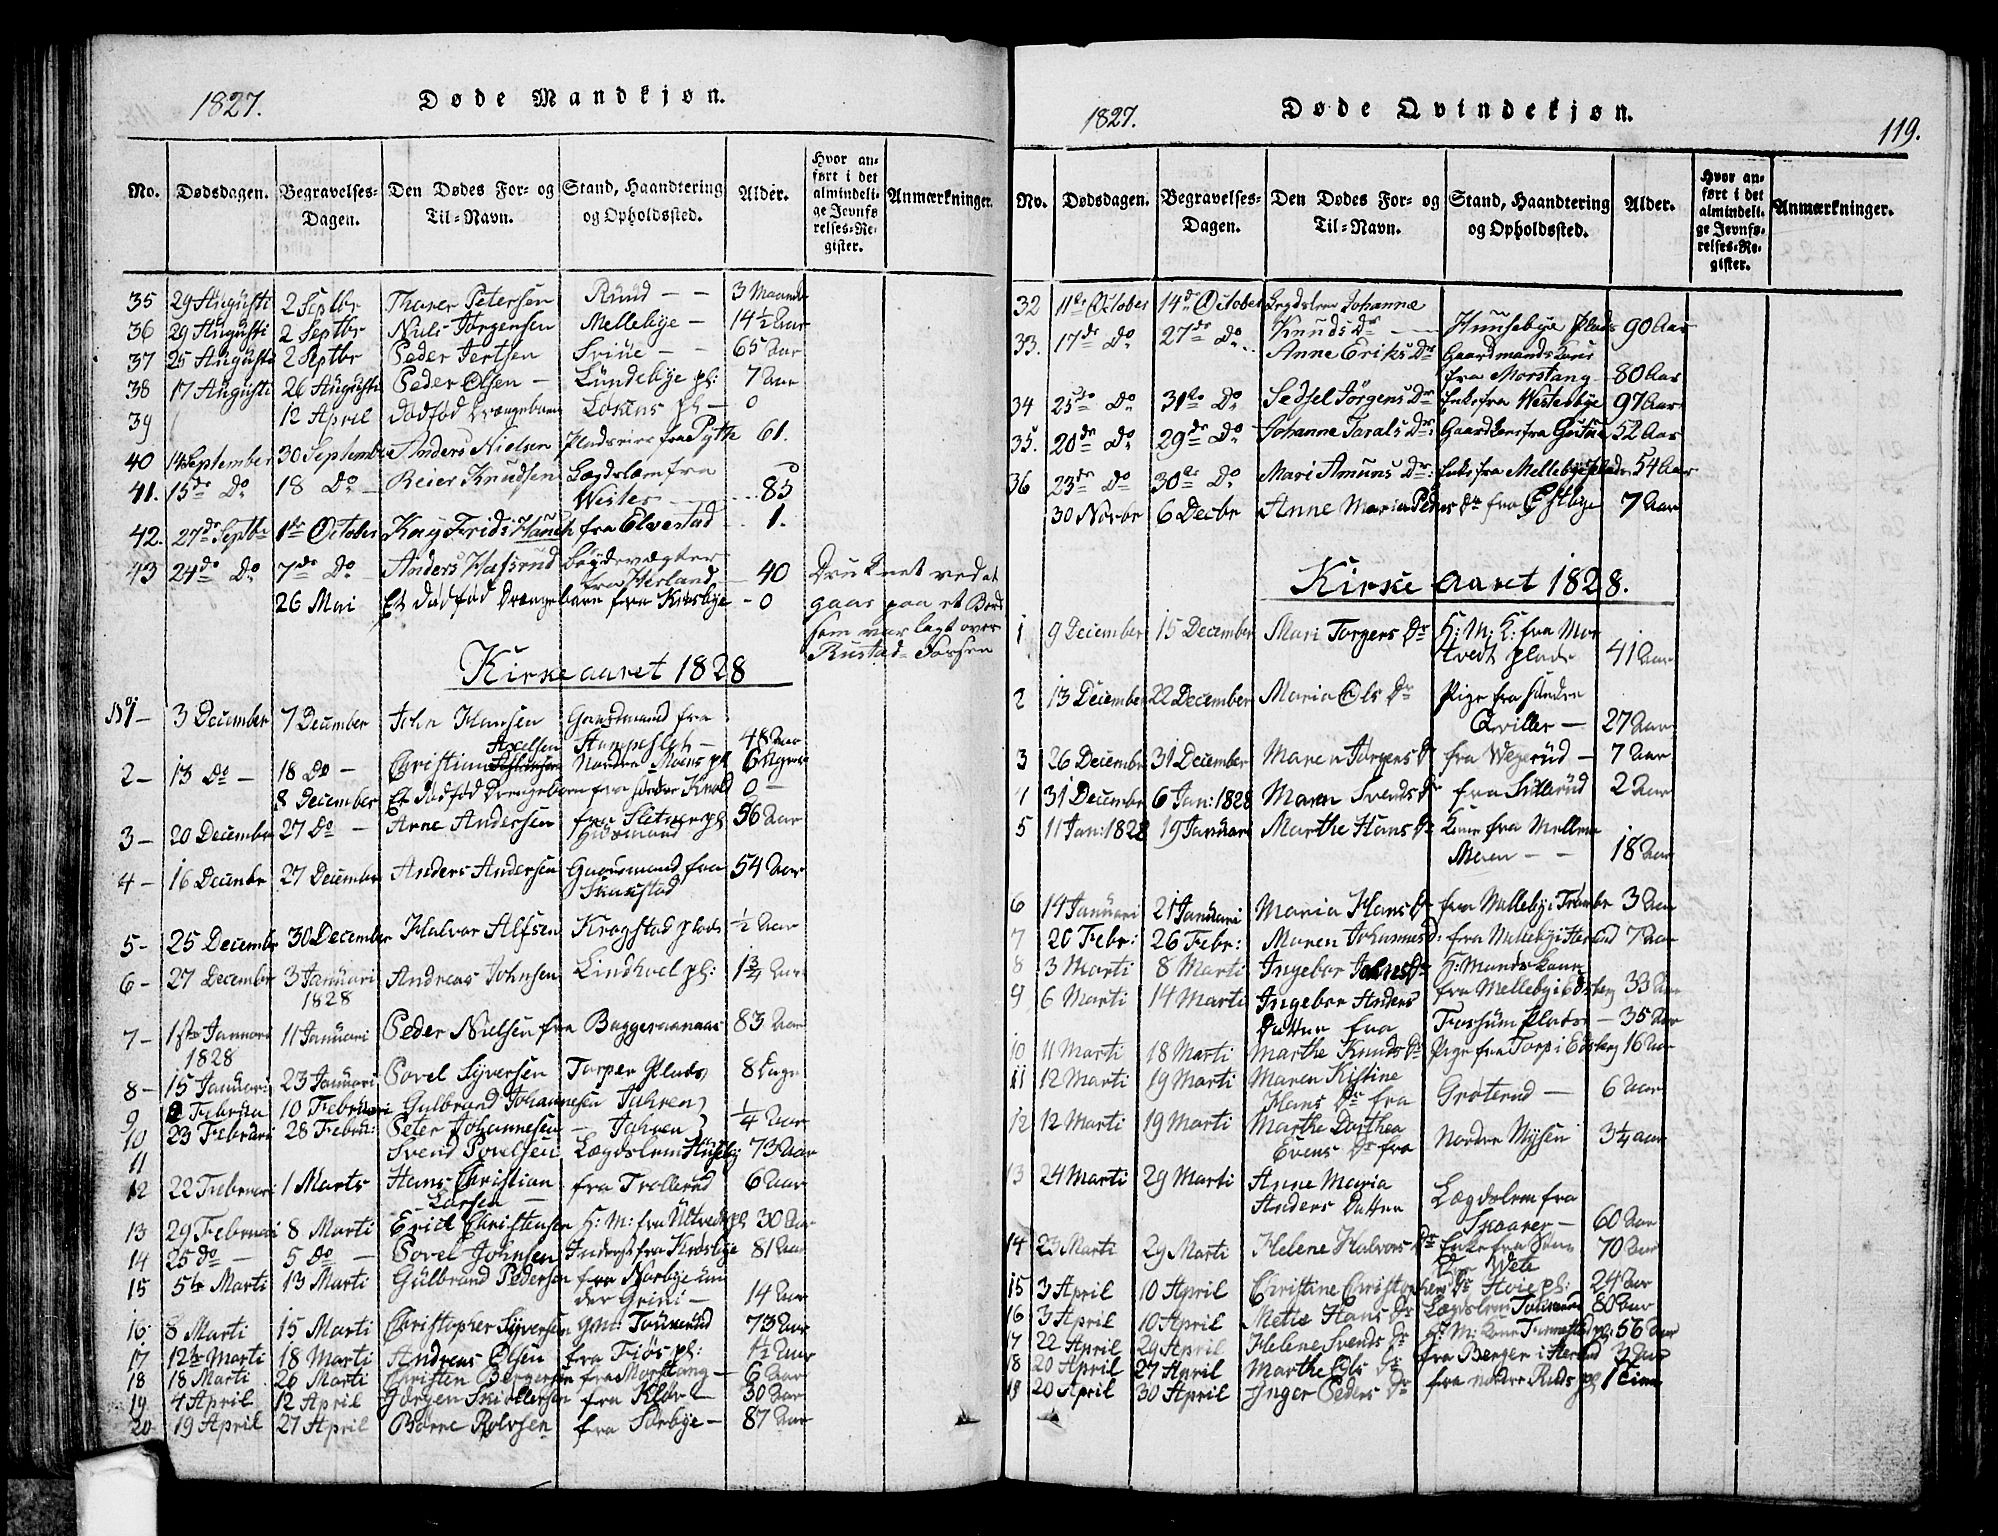 1827. Døde Mandkjøn.
No. Dødsdagen. Begravelses-Dagen. Den Dødes For- og Til-Navn. Stand, Haandtering og Opholdssted. Alder. Hvor anført i det almindelige Jevnførelses-Register. Anmærkninger.
35 29 Augusti 2 Septbr Tharer Petersen Ruud - - 3 Maaneder
36 29 Augusti 2 Septbr Niels Jørgensen Mellebye - 14 1/2 Aar
37 25 Augusti 2 Septbr Peder Jertsen - - 65 Aar
38 17 Augusti 26 Augusti Peder Olsen - Lundebye pl: 7 Aar
39 12 April dødfød Drængebarn Løkens pl - 0
40 14 September 30 September Anders Nielsen Pladseier fra 61.
41. 15de Do 18 Do Reier Knudsen Lægdslem fra
Wester - 85
42. 27de Septbr 1ste October Kay Frids Hauch fra Elvestad - 1.
43 24de Do 7de Do Anders Hafsrud
fra Herland - 40 Druknet ved at
26 Mai Et dødfød Drængebarn fra Krosbye - 0 gaae paa et Bord
som var lagt over
Rustad-Forsen
Kirkeaaret 1828
No 1 - 3 December 7 December John Hansen Gaardmand fra
48 Aar
Axelsen
2 - 13 Do - 18 Do - Christian Nordre Moens pl 6 Uger
8 December Et dødfød Drengebarn fra søndre Knold 0 -
3 - 20 December 27 Do - Arne Andersen fra Sletner pl 56 Aar
Huusmand
4 - 16 Decembr 27 December Anders Andersen Gaardmand fra 54 Aar
5 - 25 Decembr 30 December Halvor Alfsen Krogstad plads 1/2 Aar
6 - 27 December 3 Januari Andreas Johnsen Lindhoel pl: 1 3/4 Aar
1828
7 - 1ste Januari 11 Januari Peder Nielsen fra Baggeraanaas 83 Aar
1828
8 - 15 Januari 23 Januari Povel Syversen Torper Plads 8 Dage
9 2 Februa 10 Februari Gulbrand Johannesen Jahren
10 23 Februari 28 Febru: Peter Johannesen - Jahren 1/4 Aar
11 Svend Povelsen Lægdslem Huseby 73 Aar
12 22 Februari 1 Marts Hans Christian fra Trollerud 6 Aar
Larsen -
13 29 Februari 8 Marti Erich Christensen H: M: fra Ultvedt pl 30 Aar
14 25 Do - 5 Do - Povel Johnsen Inderst fra Krosbye 81 Aar
15 5te Marti 13 Marti Gulbrand Pedersen fra Norbye un
der Grini - 14 Aar
16 8 Marti 15 Marti Christopher Syversen G.M. 73 Aar
17 12te Marti 18 Marti Andreas Olsen fra Fiøs pl: 1/2 Aar
18 18 Marti 26 Marti Christin Bergersen fra Morstang - 6 Aar
19 4 April 12 April Jørgen fra Kløv - 30 Aar
20 19 April 27 April Børre Rolvsen fra Sørbye - 87 Aar
1827. Døde Qvindekjøn. 119.
No. Dødsdagen. Begravelses-Dagen. Den Dødes For- og Til-Navn. Stand, Haandtering og Opholdssted. Alder. Hvor anført i det almindelige Jevnførelses-Register. Anmærkninger.
32 11te October 14de October Legdslem Johanne
Knuds Dr - Plads 90 Aar
33. 17de Do 27de Do Anne Eriks Dr Gaardmands Kone
fra Morstang 80 Aar
34 25de Do 31te Do Sedsel Jørgens Dr Enke fra Westerbye 97 Aar
35. 20de Do 29de Do Johanne Tarals Dr: Gaardkone fra 52 Aar
36 23de Do 30te Do Mari Amuns Dr: Enke fra Mellebye plads 54 Aar
30 Novbr 6 Decbr Anne Maria Peders Dr fra Østbye 7 Aar
Kirke aaret 1828.
1 9 December 15 December Mari Torgers Dr H: M: K: fra Mor
tvedt plads 41 Aar
2 13 December 22 December Maria Ols Dr Pige fra søndre
Qviller - 27 Aar
3 26 December 31 December Maren Jørgens Dr fra Wegerud - 7 Aar
4 31 Decembr 6 Jan: 1828 Maren Svends Dr fra Sillerud 2 Aar
5 11 Jan: 1828 19 Januari Marthe Hans Dr Kone fra Mellem
Moen - - 18 Aar
6 14 Januari 21 Januari Maria Hans Dr fra Mellebye i Trømbr 3 Aar
7 20 Febr: 26 Febr: Maren Johannes D: fra Mellebye i Herland 7 Aar
8 3 Marti 8 Marti Ingebor Johns Dr H: Mands kone
fra Mellebye i Edsberg 33 Aar
9 6 Marti 14 Marti Ingebor Anders
Datter fra Fossum Plads - 35 Aar
10 11 Marti 18 Marti Marthe Knuds Dr Pige fra Torp i Edsberg 16 Aar
11 12 Marti 19 Marti Maren Kistine
Hans Dr fra Grøterud - 6 Aar
12 12 Marti 19 Marti Marthe Dorthea
Evens Dr fra Nordre Mysen 3 1/4 Aar
13 24 Marti 29 Marti Anne Maria
Anders Datter Lægdslem fra
Skaarer - 60 Aar
14 23 Marti 29 Marti Helene Halvors Dr Enke fra 70 Aar
15 3 April 10 April Christine Christophers Dr Hoie pl: 24 Aar
16 3 April 10 April Mette Hans Dr Lægdslem 80 Aar
17 22 April 29 April Helene Svends Dr H: M: Kone Finnestad pl: 56 Aar
18 20 April 27 April Marthe Dr fra Berger i Herland 3 Aar
19 20 April 30 April Inger Peders Dr fra nordre Ruds pl 1